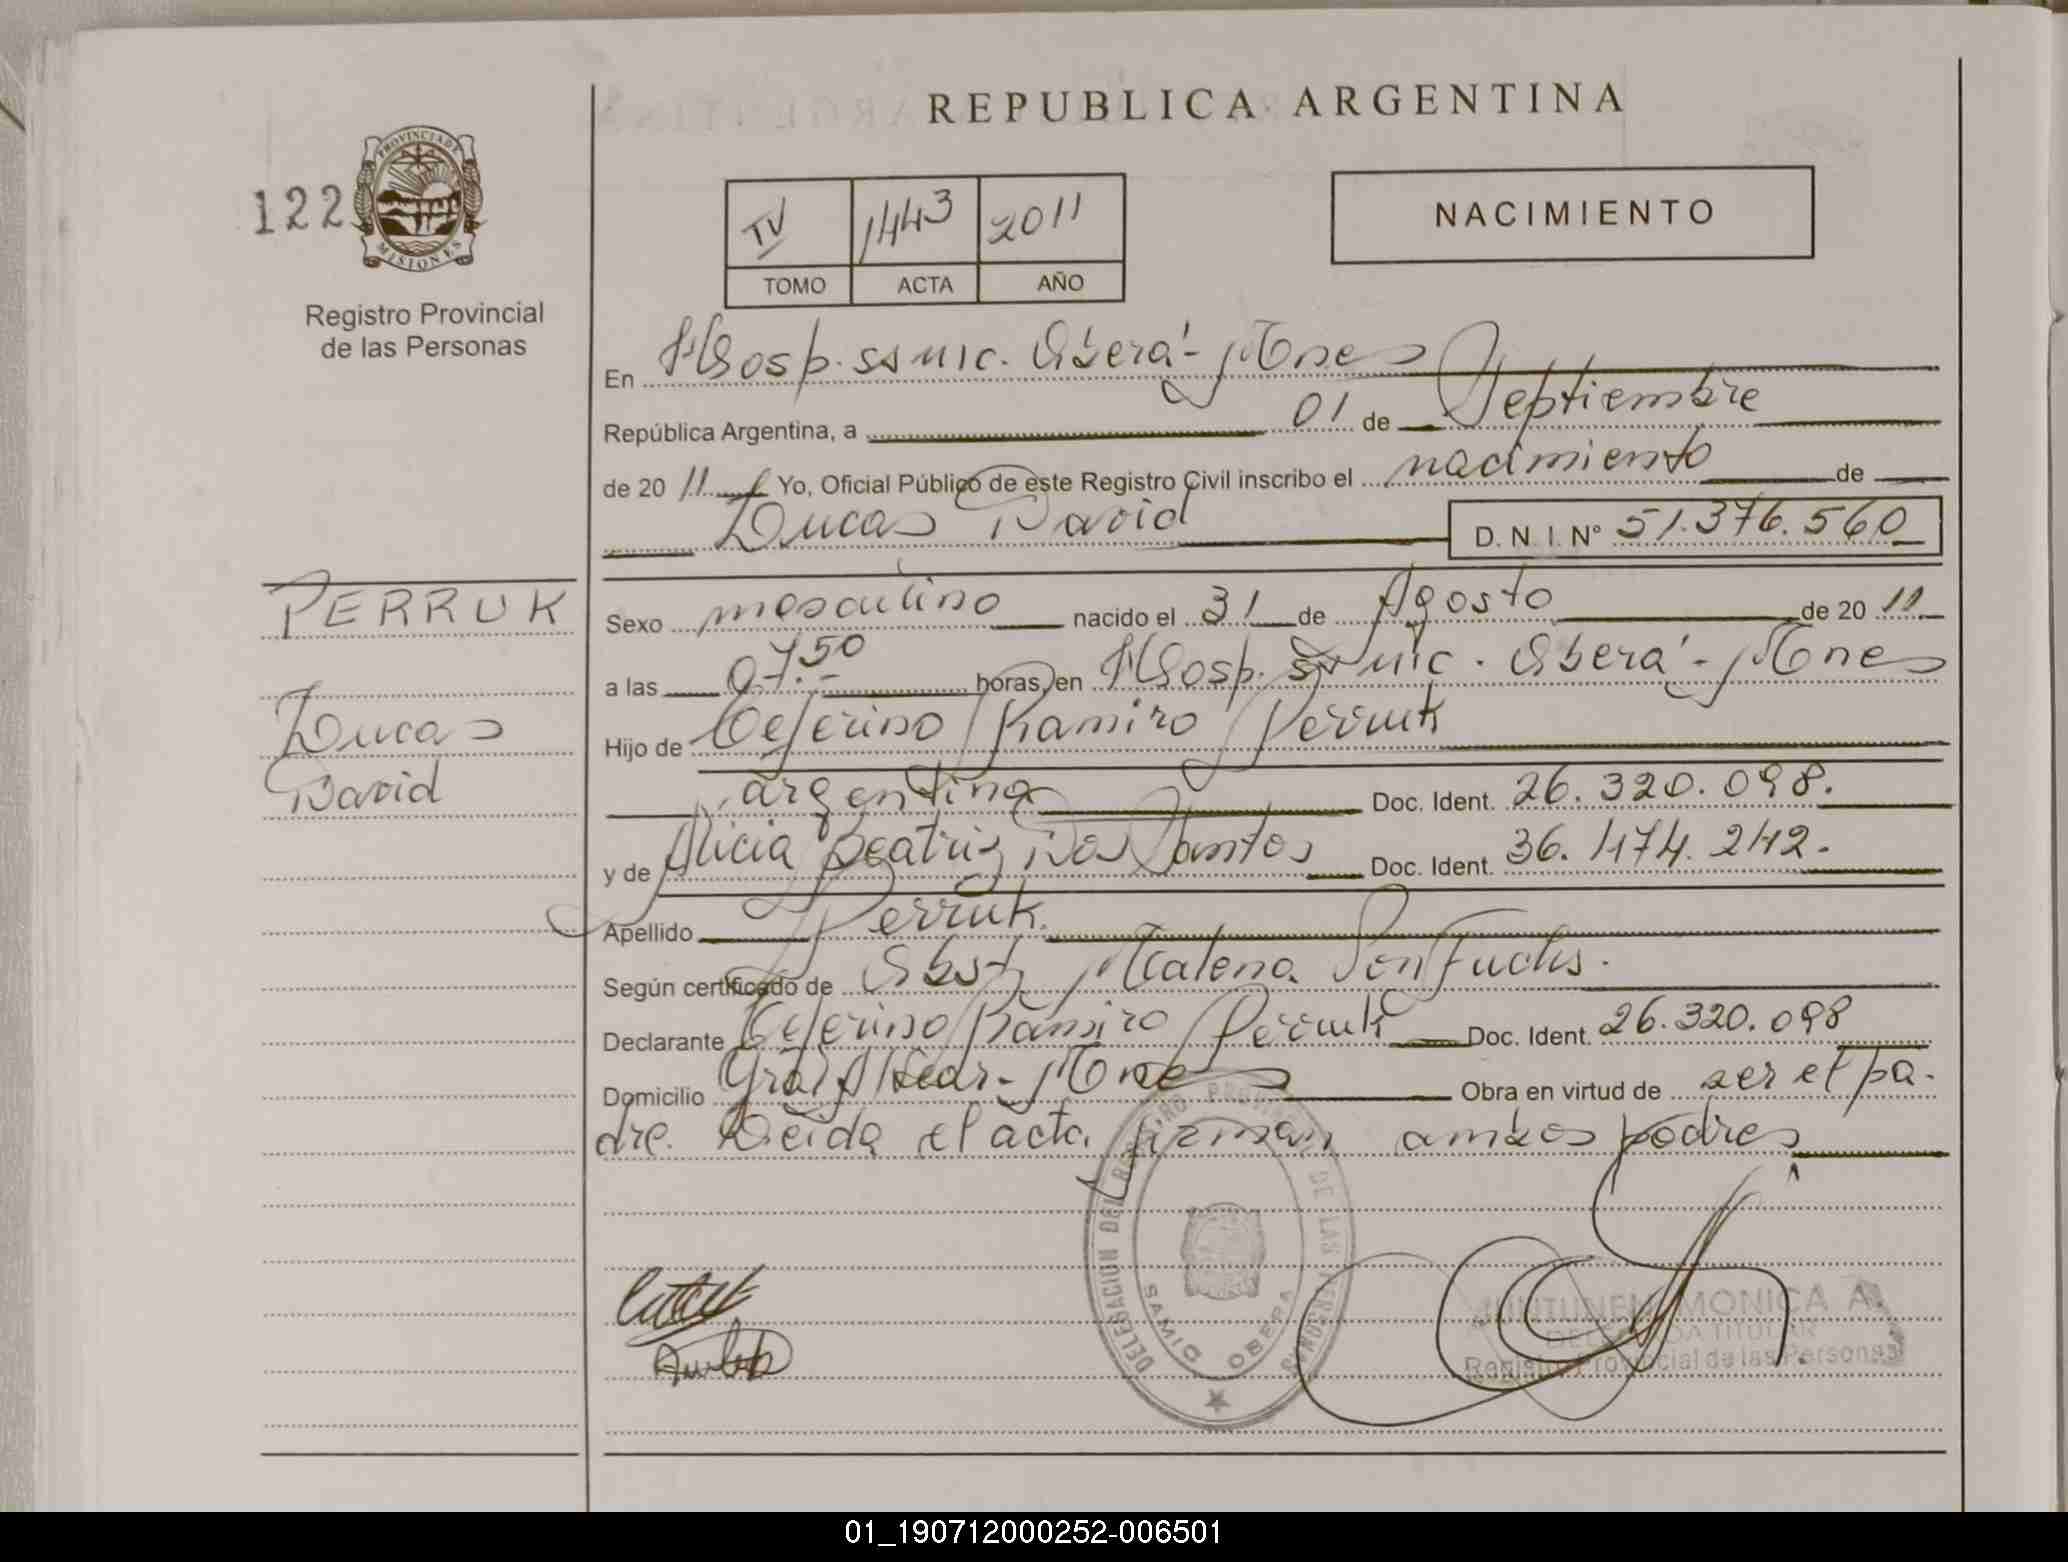 REPUBLICA ARGENTINA
122
PROVINCIA DE MISIONES
Registro Provincial
de las Personas
IV 1443 2011
TOMO ACTA AÑO
NACIMIENTO
En Hosp. ssmic. Oberá - Mnes
República Argentina, a 01 de Septiembre
de 20 11 Yo, Oficial Público de este Registro Civil inscribo el nacimiento de
Lucas David D. N. I. N° 51.376.560
PERRUK
Lucas
David
Sexo masculino nacido el 31 de Agosto de 20 11
a las 07.50 horas, en Hosp. ssmic. Oberá - Mnes
Hijo de Ceferino Ramiro Perruk
argentina Doc. Ident. 26.320.098.
y de Alicia Beatriz Dos Santos Doc. Ident. 36.474.242.
Apellido Perruk.
Según certificado de Obst. Malena
Declarante Ceferino Ramiro Perruk Doc. Ident. 26.320.098
Domicilio Gral Alvear - Mnes Obra en virtud de ser el pa-
dre. Leída el acta firman ambos padres
DELEGACION DEL REGISTRO PROVINCIAL DE LAS PERSONAS
SAMIC OBERA
MONICA A.
DELEGADA TITULAR
Registro Provincial de las Personas
01_190712000252-006501